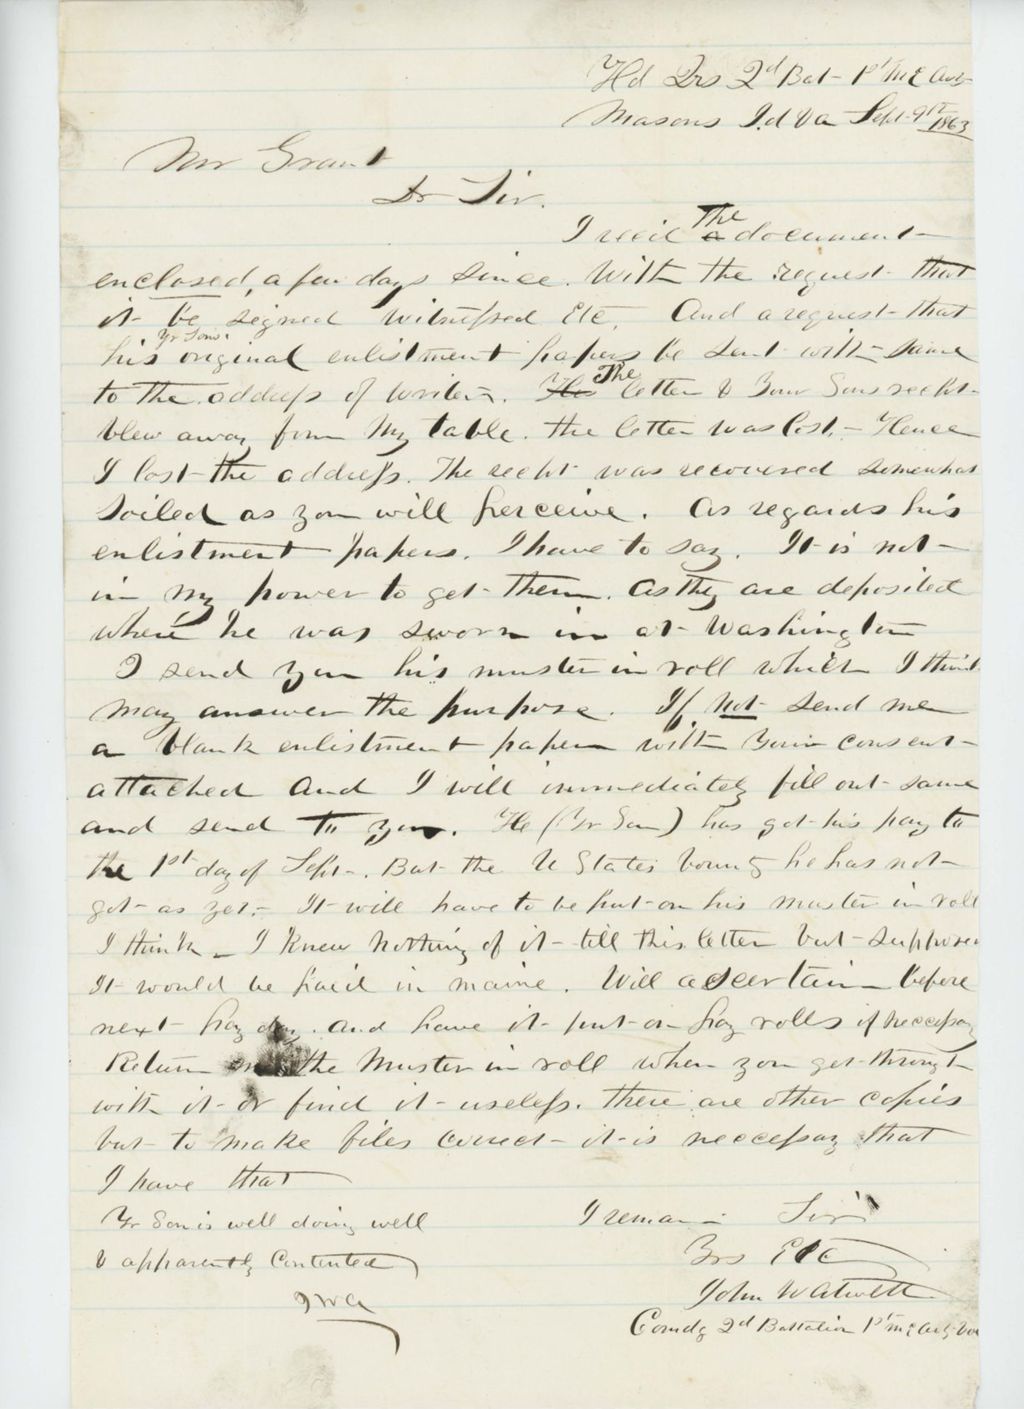 Hd Qrs 2d Bat- 1st Me Arty
Masons Id Va Sept. 9th 1863
Mr Grant
Dr Sir.
I recd The document
enclosed, a few days since. With the request that
it be signed Witnessed Etc, And a request that
Yr Sons
his original enlistment papers be sent with same
to the address of writer. He The letter & Your Sons recpt
blew away from My table. the letter was lost, - Hence
I lost the address. The recpt was recovered somewhat
Soiled as you will perceive. As regards his
enlistment papers. I have to say. It is not
in my power to get them. as they are deposited
where he was sworn in at Washington
I send you his muster in roll which I think
may answer the purpose. If not send me
a blank enlistment paper with Your consent
attached and I will immediately fill out same
and send to you. He (Yr Son) has got his pay to
the 1st day of Sept-. But the U States bounty he has not
got as yet. - It will have to be put on his muster in roll
I think - I knew nothing of it till this letter but supposed
It would be paid in maine. Will ascertain before
next pay day. and have it put on pay rolls if neccessay
Return the Muster in roll when you get through
with it or find it useless. there are other copies
but to make files correct it is neccessay that
I have that
Yr Son is well doing well
& apparently Contented
JWA
I remain Sir
Yrs Etc
John W Atwell
Comdg 2d Battalion 1st Me Arty Vol